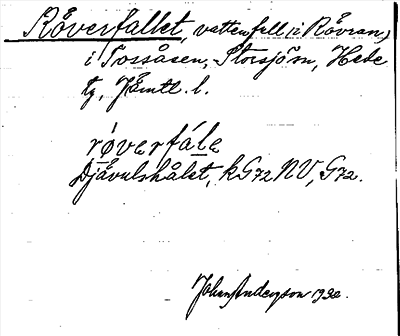 Råverfallet, vattenfall (i Råvran)
i Tossåsen, Storsjö sn, Hede
tg, Jämtl. l.
råverfále
Djävulshålet, kG72NV, G72.
Johan Anderson 1932.